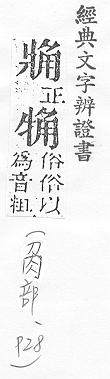 經典文字辨證書
觕正
𤙯俗俗以
為音粗
(角部、P28)